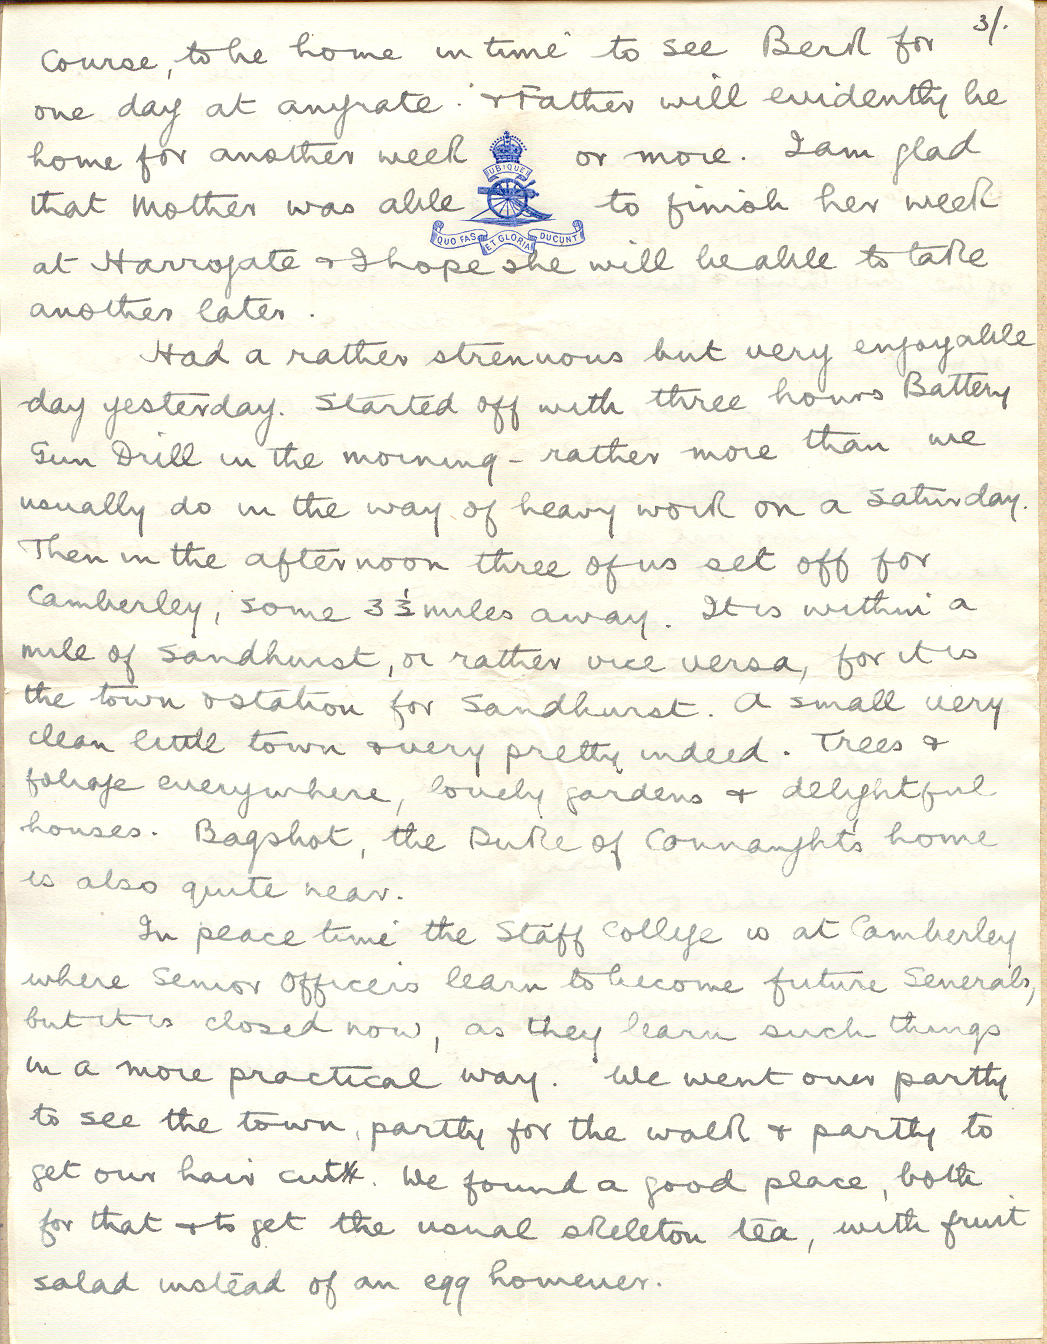 3/.
Course, to be home in time to see Berk for
one day at anyrate. & Father will evidently be
home for another week or more. I am glad
UBIQUE
that Mother was able to finish her week
QUO FAS ET GLORIA DUCUNT
at Harrogate & I hope she will be able to take
another later.
Had a rather strenuous but very enjoyable
day yesterday. Started off with three hours Battery
Gun Drill in the morning - rather more than we
usually do in the way of heavy work on a Saturday.
Then in the afternoon three of us set off for
Camberley, some 3 1/2 miles away. It is within a
mile of Sandhurst, or rather vice versa, for it is
the town & station for Sandhurst. A small very
clean little town & very pretty indeed. Trees &
foliage everywhere, lovely gardens & delightful
houses. Bagshot, the Duke of Connaught's home
is also quite near.
In peace time the Staff College is at Camberley
where Senior Officers learn to become future Generals,
but it is closed now, as they learn such things
in a more practical way. We went over partly
to see the town, partly for the walk & partly to
get our hair cut. We found a good place, both
for that & to get the usual skeleton tea, with fruit
salad instead of an egg however.